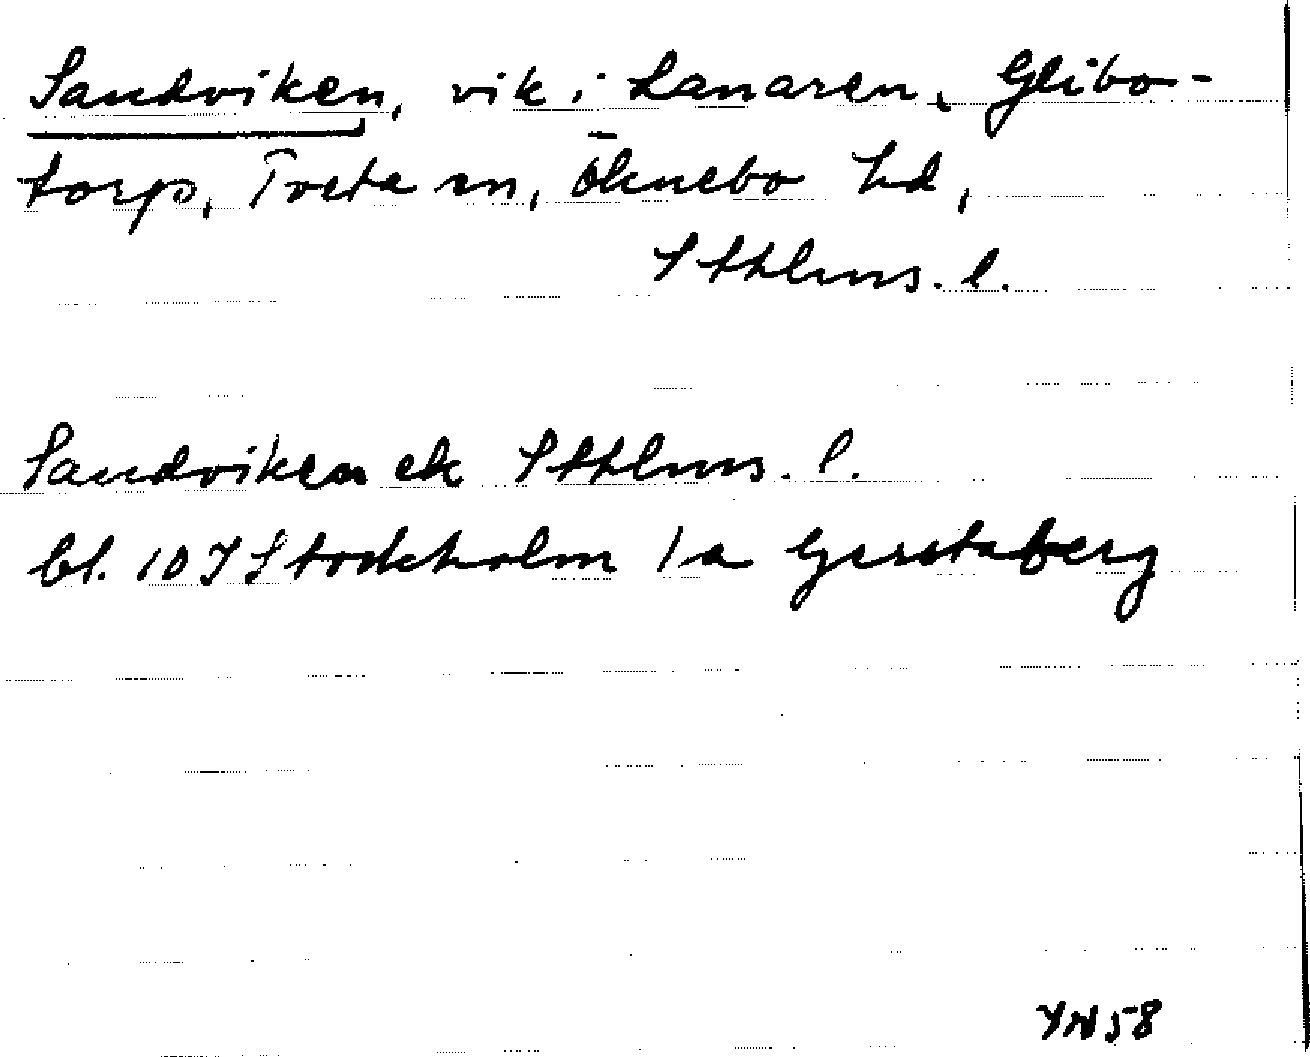 Sandviken, vik i Lanaren, Glibo-
torp, Tveta sn, Öknebo hd,
Sthlms. l.
Sandviken ek Sthlms. l.
bl. 10 I Stockholm 1a Gerstaberg
YN 58